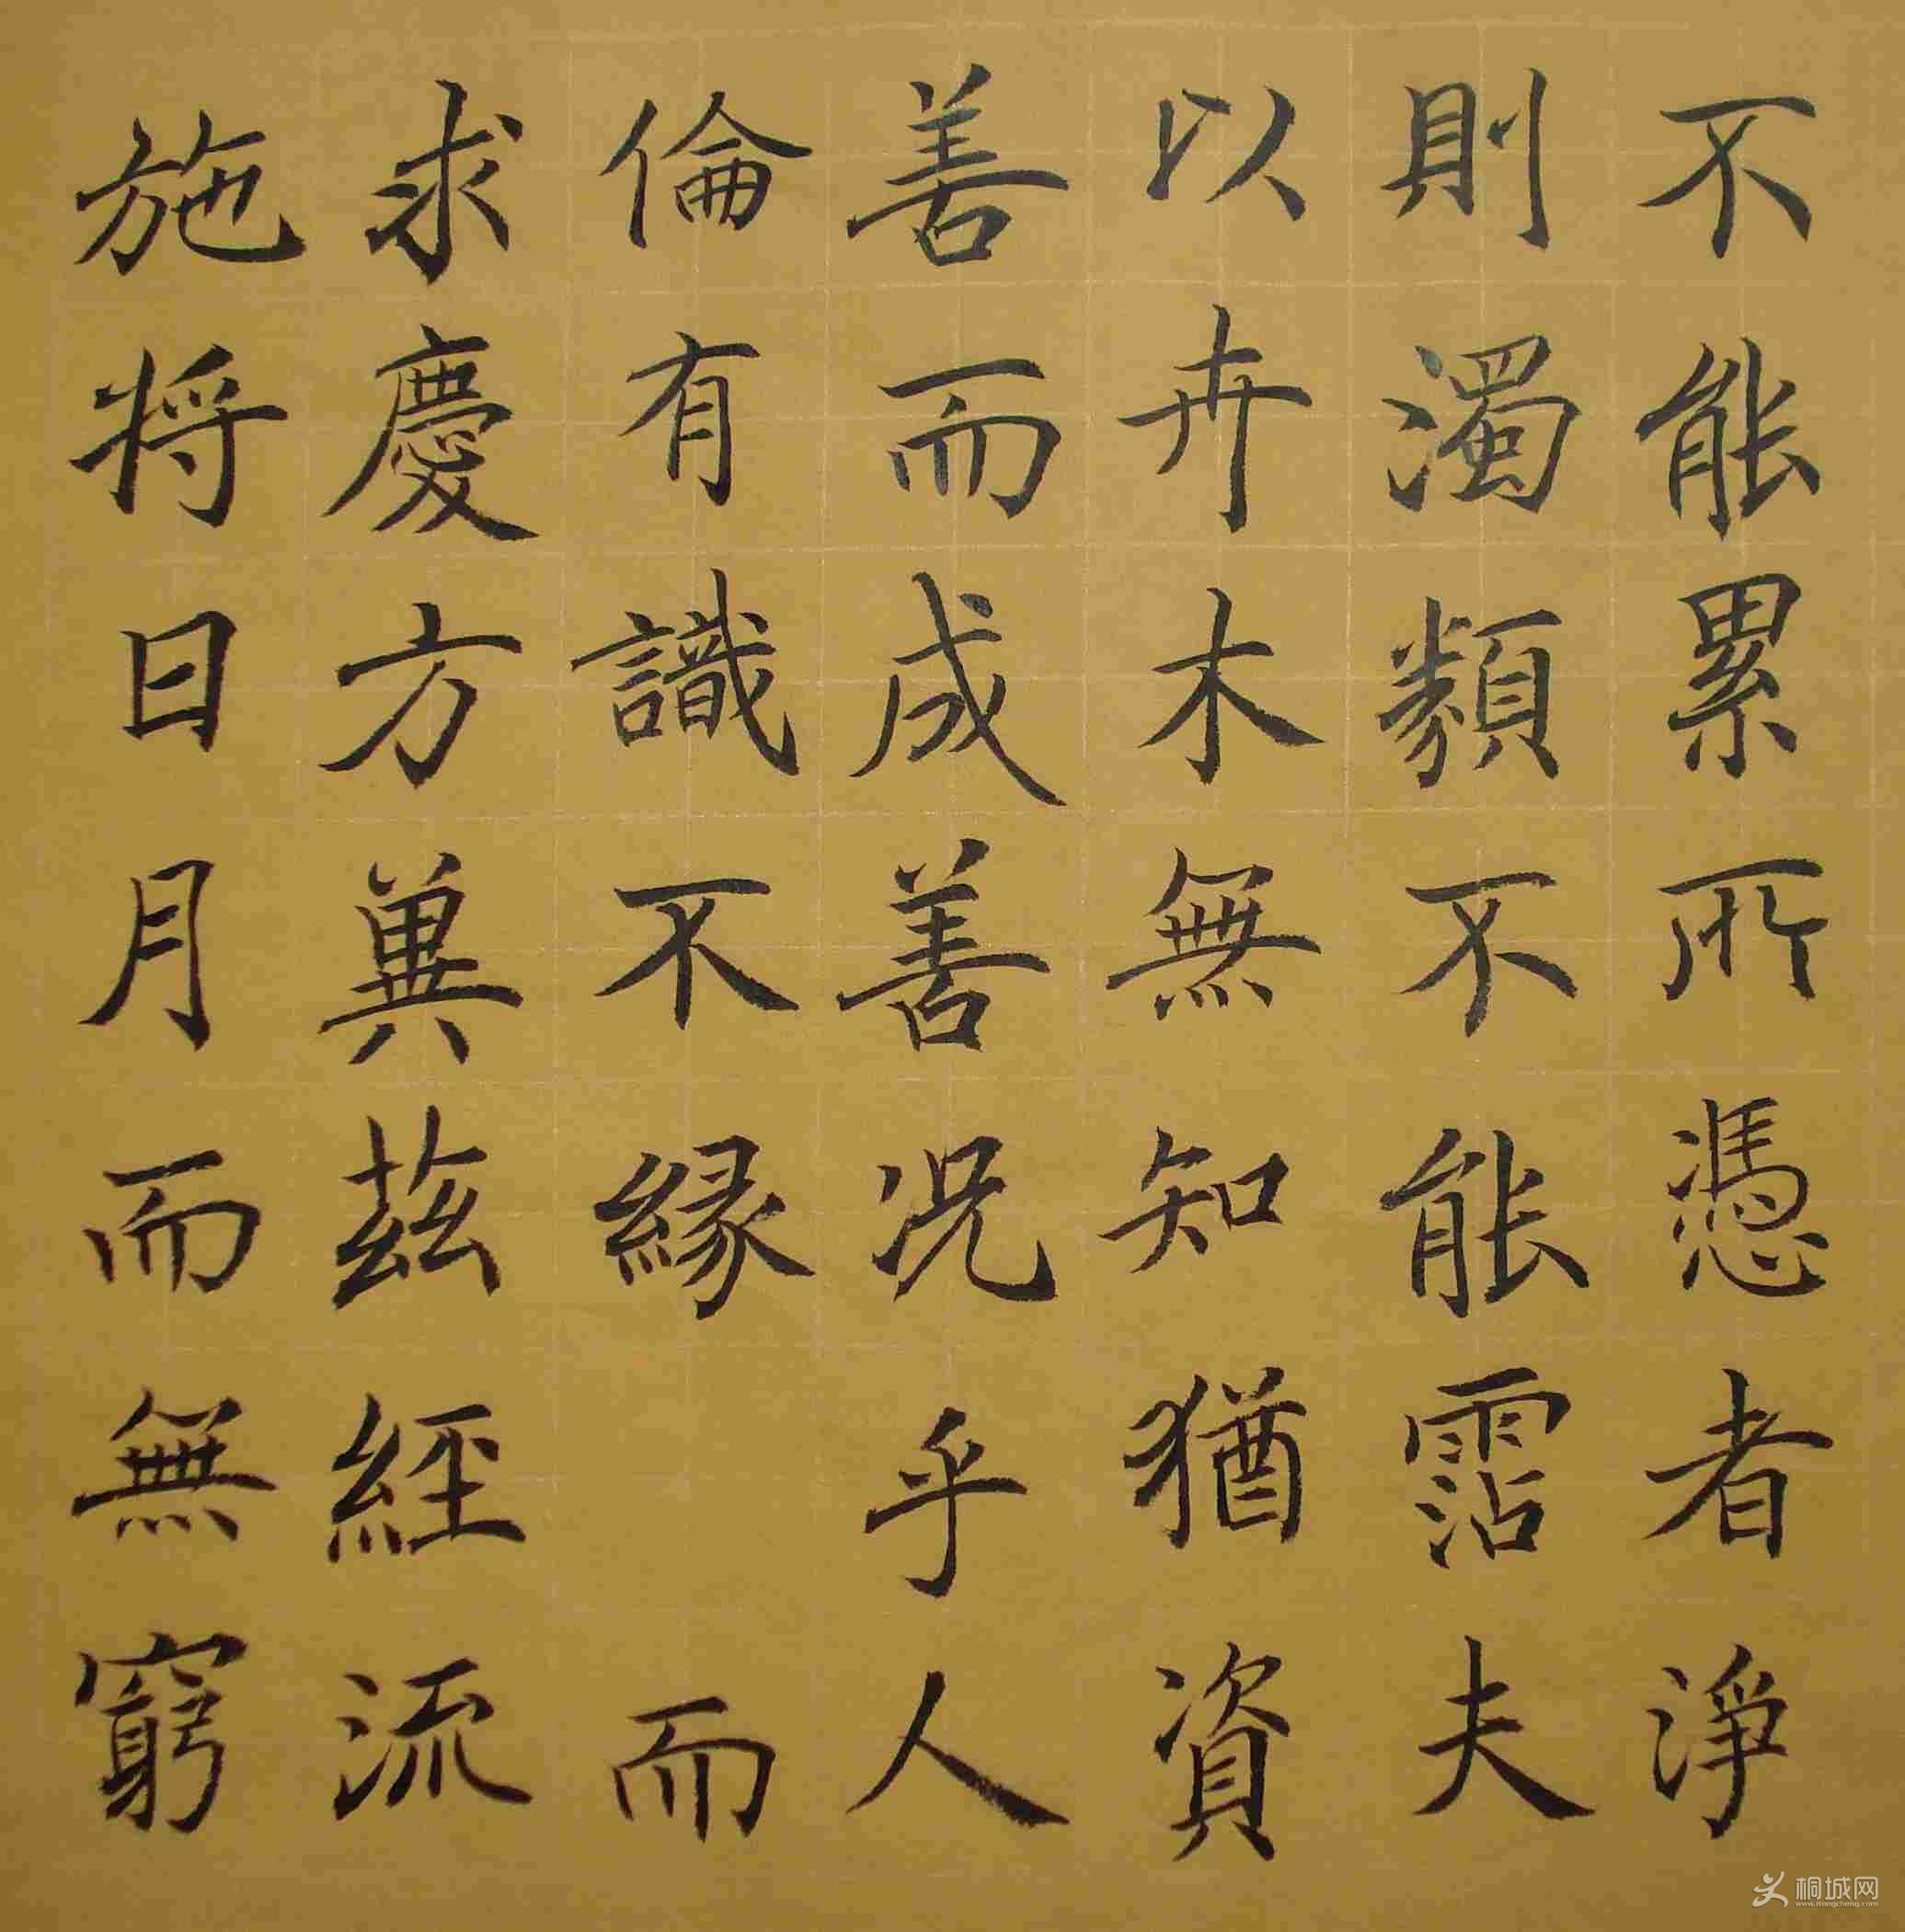 不能累所憑者淨
則濁類不能霑夫
以卉木無知猶資
善而成善况乎人
倫有識不緣而
求慶方冀茲經流
施將日月而無窮
桐城网
www.itongcheng.com